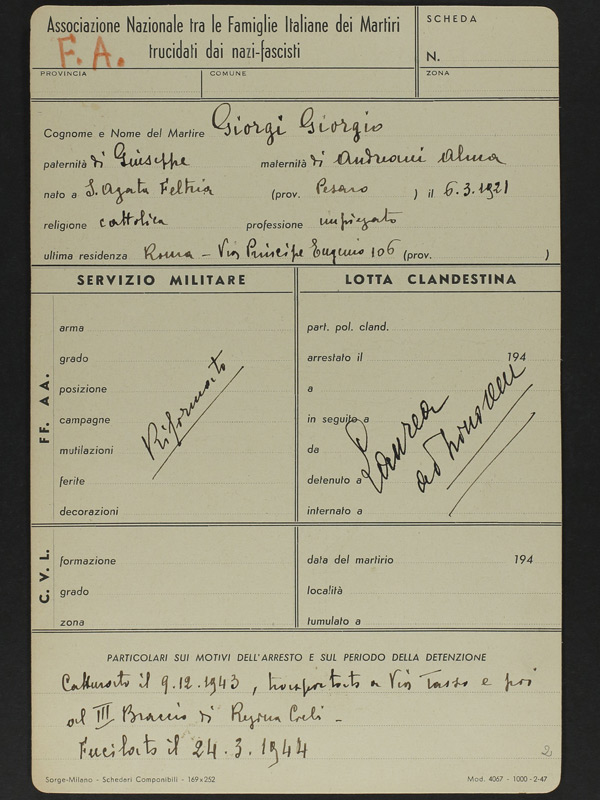 Associazione Nazionale tra le Famiglie Italiane dei Martiri
trucidati dai nazi-fascisti
F. A.
SCHEDA
N.
PROVINCIA
COMUNE
ZONA
Cognome e Nome del Martire Giorgi Giorgio
paternità di Giuseppe maternità di Andreani Alma
nato a S. Agata Feltria (prov. Pesaro ) il 6.3.1921
religione cattolica professione impiegato
ultima residenza Roma - Via Principe Eugenio 106 (prov. )
SERVIZIO MILITARE
FF. AA.
arma
grado
posizione
campagne
mutilazioni
ferite
decorazioni
Riformato
LOTTA CLANDESTINA
part. pol. cland.
arrestato il 194
a
in seguito a
da
detenuto a
internato a
Laurea
ad honorem
C. V. L.
formazione
grado
zona
data del martirio 194
località
tumulato a
PARTICOLARI SUI MOTIVI DELL'ARRESTO E SUL PERIODO DELLA DETENZIONE
Catturato il 9.12.1943, trasportato a Via Tasso e poi
al III Braccio di Regina Coeli -
Fucilato il 24.3.1944
2
Sorge-Milano - Schedari Componibili - 169x252
Mod. 4067 - 1000 - 2-47